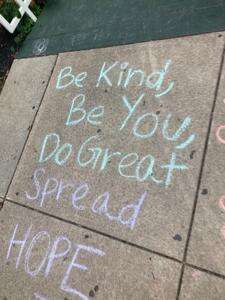 Be Kind,
Be You,
Do Great
Spread
HOPE